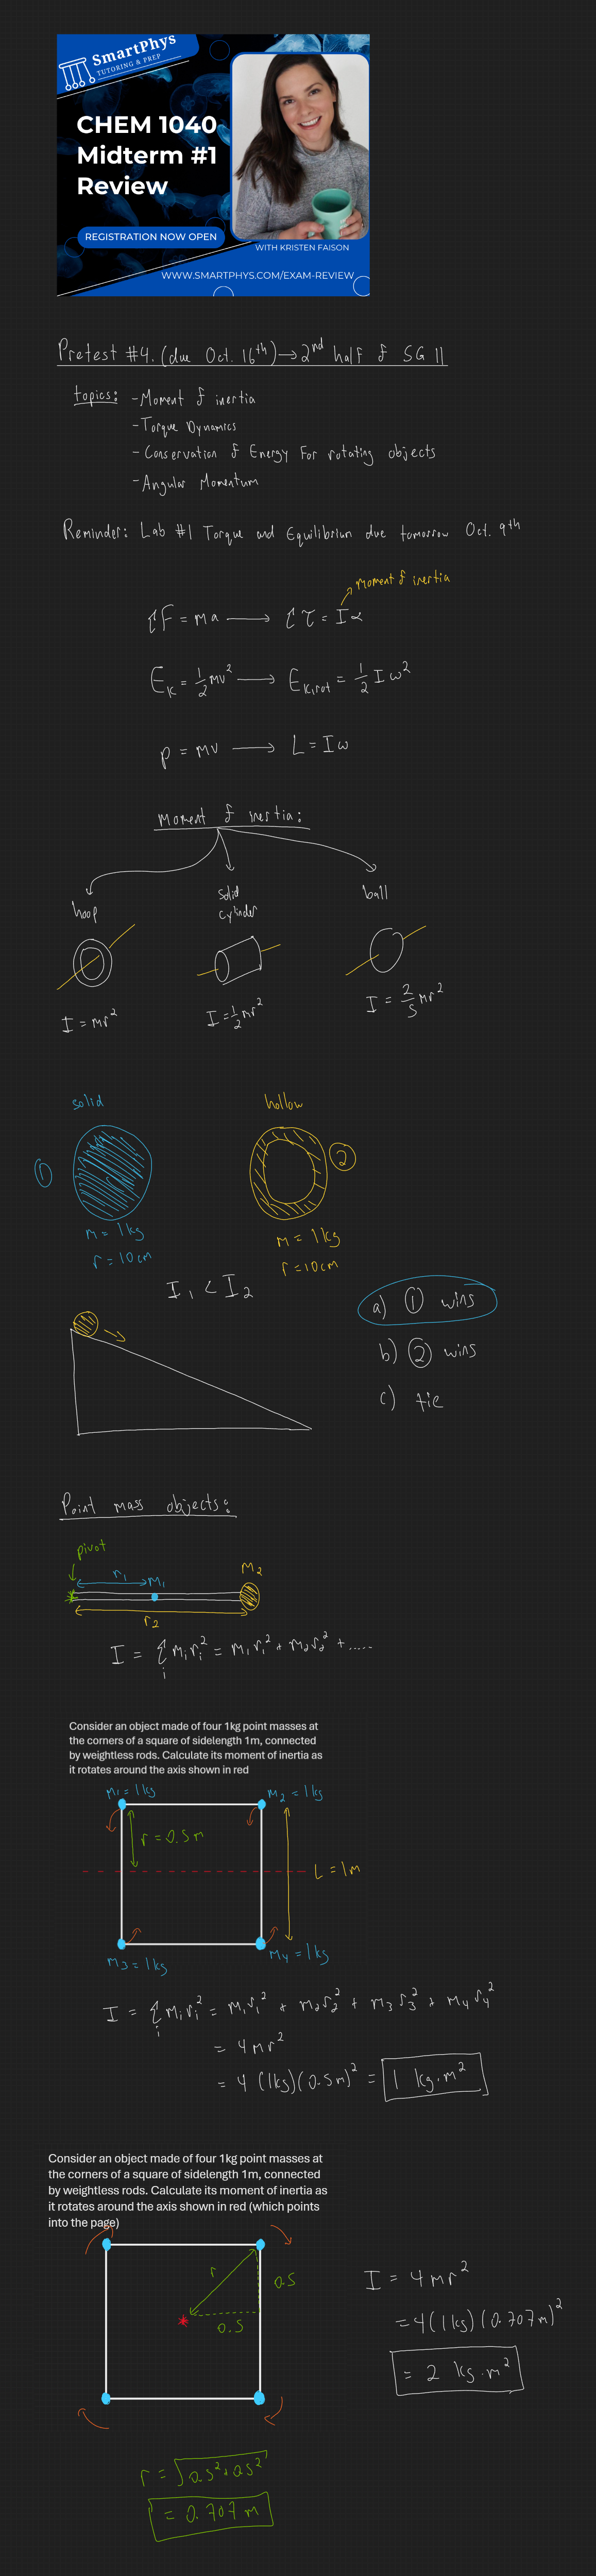 SmartPhys
TUTORING & PREP
CHEM 1040
Midterm #1
Review
REGISTRATION NOW OPEN
WITH KRISTEN FAISON
WWW.SMARTPHYS.COM/EXAM-REVIEW
Pretest #4. (due Oct. 16th) → 2nd half of SG 11
topics: - Moment of inertia
- Torque Dynamics
- Conservation of Energy For rotating objects
- Angular Momentum
Reminder: Lab #1 Torque and Equilibrium due tomorrow Oct. 9th
Moment of inertia
ΣF = ma → Στ = Iα
E_K = 1/2 mv² → E_K,rot = 1/2 I ω²
p = mv → L = Iω
Moment of inertia:
hoop
solid cylinder
ball
I = mr²
I = 1/2 mr²
I = 2/5 mr²
solid
hollow
①
②
m = 1kg
r = 10cm
m = 1kg
r = 10cm
I₁ < I₂
a) ① wins
b) ② wins
c) tie
Point mass objects:
pivot
r₁
m₁
m₂
r₂
I = Σ_i m_i r_i² = m₁r₁² + m₂r₂² + .....
Consider an object made of four 1kg point masses at
the corners of a square of sidelength 1m, connected
by weightless rods. Calculate its moment of inertia as
it rotates around the axis shown in red
m₁ = 1kg
m₂ = 1kg
r = 0.5m
L = 1m
m₃ = 1kg
m₄ = 1kg
I = Σ_i m_i r_i² = m₁r₁² + m₂r₂² + m₃r₃² + m₄r₄²
= 4mr²
= 4 (1kg)(0.5m)² = 1 kg·m²
Consider an object made of four 1kg point masses at
the corners of a square of sidelength 1m, connected
by weightless rods. Calculate its moment of inertia as
it rotates around the axis shown in red (which points
into the page)
r
0.5
0.5
I = 4mr²
= 4(1kg)(0.707m)²
= 2 kg·m²
r = √0.5² + 0.5²
= 0.707 m